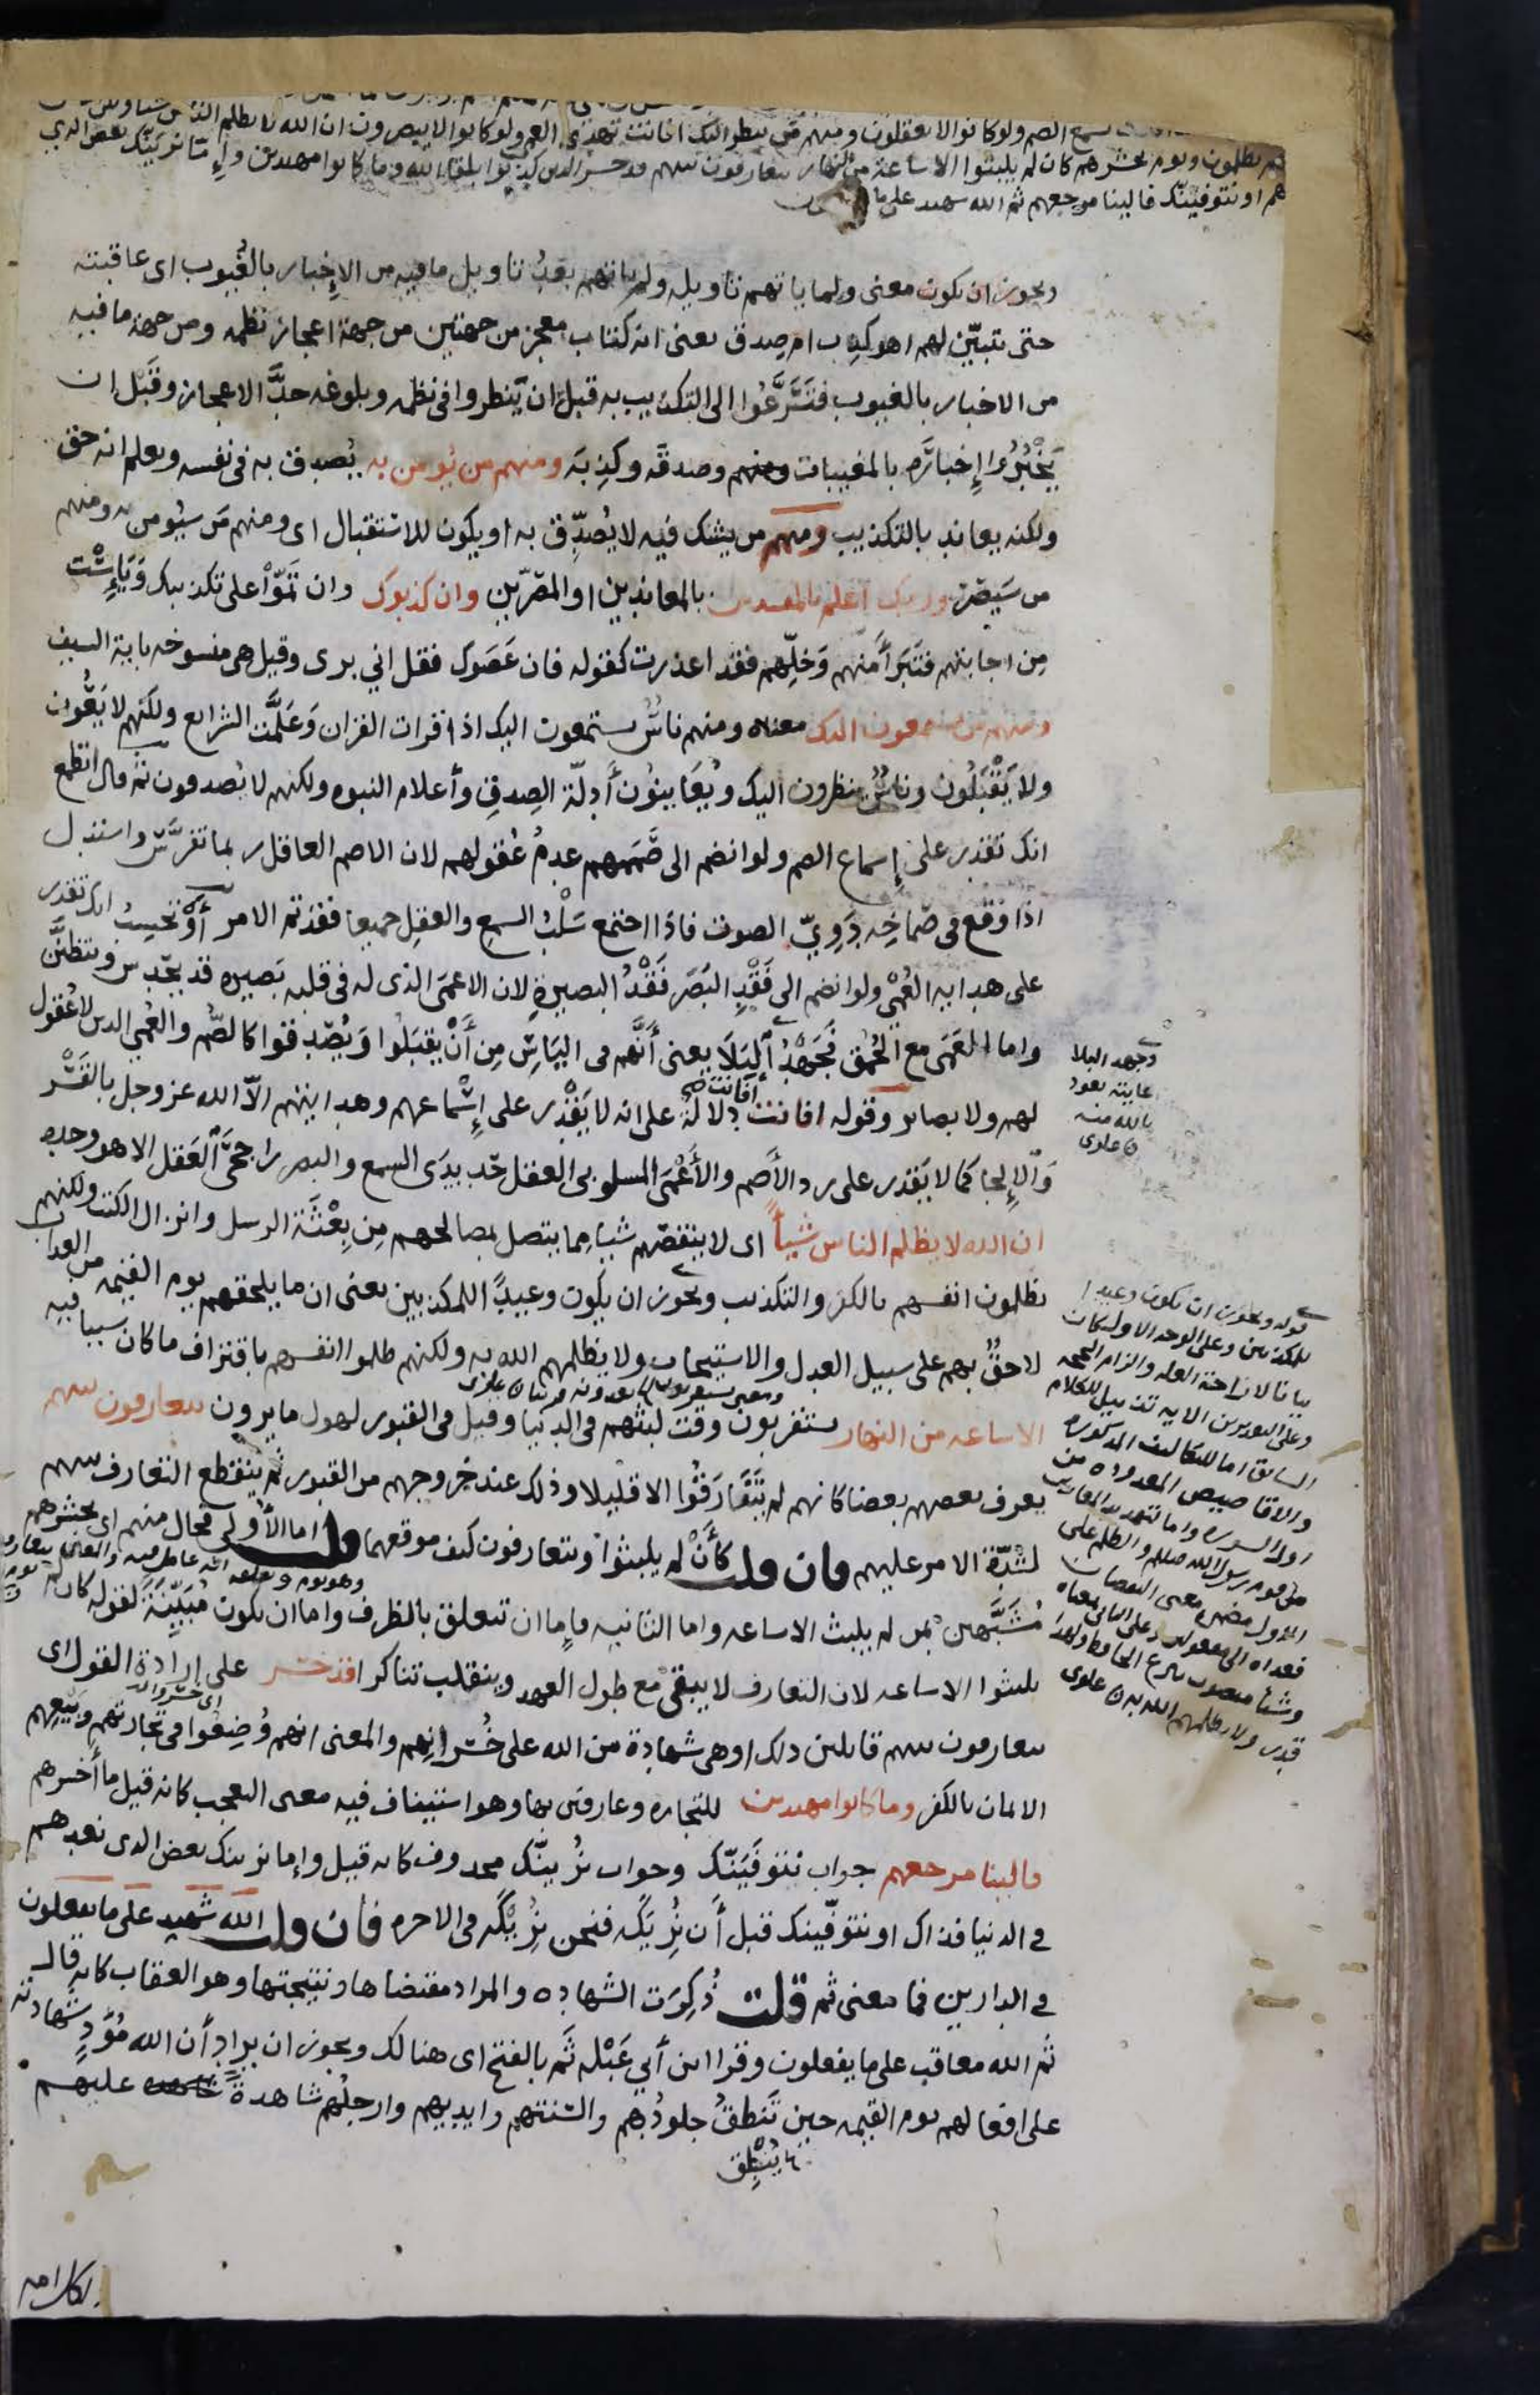 تسمع الصم ولو كانوا لا يعقلون ومنهم من ينظر اليك افانت تهدي العمي ولو كانوا لا يبصرون ان الله لا يظلم الناس شيا ولكن
يظلمون ويوم يحشرهم كان لم يلبثوا الا ساعة من النهار يتعارفون بينهم قد خسر الذين كذبوا بلقاء الله وما كانوا مهتدين وإما نرينّك بعض الذي
هم او نتوفينّك فالينا مرجعهم ثم الله شهيد على ما
ويجوز ان يكون معنى ولما ياتهم تاويله ولم ياتهم بعدُ تاويل ما فيه من الإخبار بالغُيوب اى عاقبته
حتى تتبيّن لهم اهو كذب ام صدق يعنى انه كتاب معجز من جهتين من جهة اعجاز نظمه ومن جهة ما فيه
من الاخبار بالغيوب فتَسَرَّعُوا الى التكذيب به قبل ان يَنظروا فى نظمه وبلوغه حدَّ الاعجاز وقَبْل ان
يَخْبُرُوا إِخبارَه بالمغيبات وصدقَه وكذِبَه ومنهم من يُومن به يُصدق به فى نفسه ويعلم انه حق
ولكنه يعاند بالتكذيب ومنهم من يشك فيه لا يُصدِّق به او يكون للاستقبال اى ومنهم مَن سيُومن به ومنهم
من سَيُصرّ وربك اعلم بالمفسدين بالمعاندين او المصرّين وان كذبوك وان تَمّوْا على تكذيبك وَيَإِسْت
مِن اجابتهم فتَبَرأْ منهم وَخلِّهم فقد اعذرت كقوله فان عَصَوك فقل اني برى وقيل هى منسوخه باية السيف
ومنهم من يستمعون اليك معناه ومنهم ناسٌ يستمعون اليك اذا قرات القران وَعَلَّمْتَ الشرايع ولكنهم لا يَعُون
ولا يَقْبَلُون وناسٌ ينظرون اليك ويُعَاينُون أَدِلّةَ الصِدقِ وأعلام النبوه ولكنهم لا يُصدقون ثم قال اتطمع
انك تقدر على إسماع الصم ولو انضم الى صَمَمهم عدمُ عُقولهم لان الاصم العاقل ربما تفرَّس واستدل
اذا وَقَع فى صِماخِه دَوِيّ الصوت فاذا اجتمع سَلْبُ السمع والعقلِ جميعا فقد تم الامر أوَ تحسِبُ انك تقدر
على هدايه العُمْي ولو انضم الى فَقْدِ البَصَر فَقْدُ البصيرةِ لان الاعمَى الذى له فى قلبه بَصيره قد يَحْدِس ويتظنَّن
واما العَمَى مع الحُمْقِ فَجَهْدُ البَلَا يعنى أَنَّهم فى الياسِ مِن أَنْ يقبَلُوا وَيُصدِّقوا كالصُّم والعُمي الذين لا عُقول
لهم ولا بصاير وقوله افانت افانت دِلالةٌ على انه لا يَقْدِر على إِسْماعهم وهدايتهم الّا الله عز وجل بالقَسْر
وَالإِلجا كما لا يَقْدر على رد الأَصم والأَعْمَى المسلوبى العقل حَديدَى السمع والبصر راجحَى العَقل الا هو وحده
ان الله لا يظلم الناس شيأً اى لا ينقصهم شيا مما يتصل بمصالحهم مِن بِعْثَة الرسل وانزال الكتب ولكنهم
يظلمون انفسهم بالكفر والتكذيب ويجوز ان يكون وعيدًا للمكذبين يعنى ان ما يلحقهم يوم القيمه من العذاب
لاحقٌ بهم على سبيل العدل والاستيجاب ولا يظلمهم الله به ولكنهم ظلموا انفسهم باقتراف ما كان سببا فيه
الا ساعه من النهار يستقربون وقت لبثهم فى الدنيا وقيل فى القبور لهول ما يرون يتعارفون بينهم
يعرف بعضهم بعضا كانهم لم يَتَعَارَفُوا الا قليلا وذلك عند خروجهم من القبور ثم ينقطع التعارف بينهم
لشدّة الامر عليهم فان قلت كأَنْ لم يلبثوا ويتعارفون كيف موقعهما قلت اما الأولى فحال منهم اى يحشرهم
مُشَبَّهين بمن لم يلبث الا ساعه واما الثانيه فاما ان تتعلق بالظرف واما ان تكون مُبَيِّنَةً لقوله كان لم
يلبثوا الا ساعه لان التعارف لا يبقى مع طول العهد وينقلب تناكرا قد خسر على إرادة القول اى
يتعارفون بينهم قايلين ذلك او هى شهادة من الله على خُسْرانِهم والمعنى انهم وُضِعُوا فى تجارتهم وبَيْعِهم
الايمان بالكفر وما كانوا مهتدين للتجاره وعارفين بها وهو استيناف فيه معنى التعجب كانه قيل ما أخسرهم
فالينا مرجعهم جواب نتوفَيَنّك وجواب نُرينّك محذوف كانه قيل وإما نرينك بعض الذى نعدهم
فى الدنيا فذاك او نتوفّينك قبل أَن نُرِيَكَه فنحن نُرِيْكَه فى الاخره فان قلت الله شهيد على ما يفعلون
فى الدارين فما معنى ثم قلت ذُكِرَت الشهاده والمراد مقتضاها ونتيجتها وهو العقاب كانه قال
ثم الله معاقب على ما يفعلون وقرا ابن أبي عَبْلَه ثَم بالفتح اى هنالك ويجوز ان يراد أن الله مُوَدٍّ شهادته
على افعالهم يوم القيمه حين تَنطقُ جلودُهم والسنتهم وايديهم وارجلُهم شاهدةً عليهم
يُنْطِق
وجهد البلا
غايته نعوذ
بالله منه
ن علوى
قوله ويجوز ان يكون وعيدا
للمكذبين وعلى الوجه الاول كان
بيانا لازاحة العله والزام الحجه
وعلى التقديرين الايه تذييل للكلام
السابق اما للتكاليف المذكوره
والاقاصيص المعدوده من
اول السوره
الاول مضمن معنى النقصان
فعداه الى مفعولين وعلى الثانى معناه
ولا يظلمهم الله به ن علوى